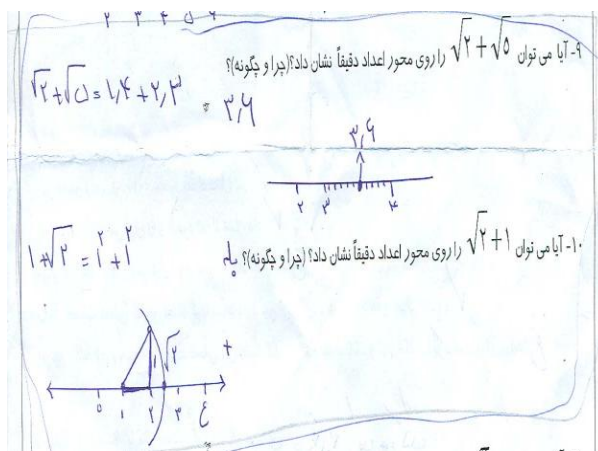 ۲ ۳ ۴ ۵ ۶
۹- آیا می توان √۲+√۵ را روی محور اعداد دقیقاً نشان داد؟(چرا و چگونه)؟
√۲+√۵=۱,۴+۲,۳
= ۳,۶
۳,۶
۲ ۳ ۴
۱۰- آیا می توان √۲+۱ را روی محور اعداد دقیقاً نشان داد؟ (چرا و چگونه)؟ بله
۱+√۲ = ۱²+۱²
۱ √۲ +
۰ ۱ ۲ ۳ ٤